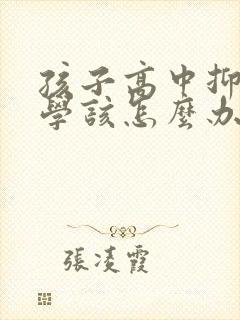 孩子高中抑
學該怎麼办
張凌霞